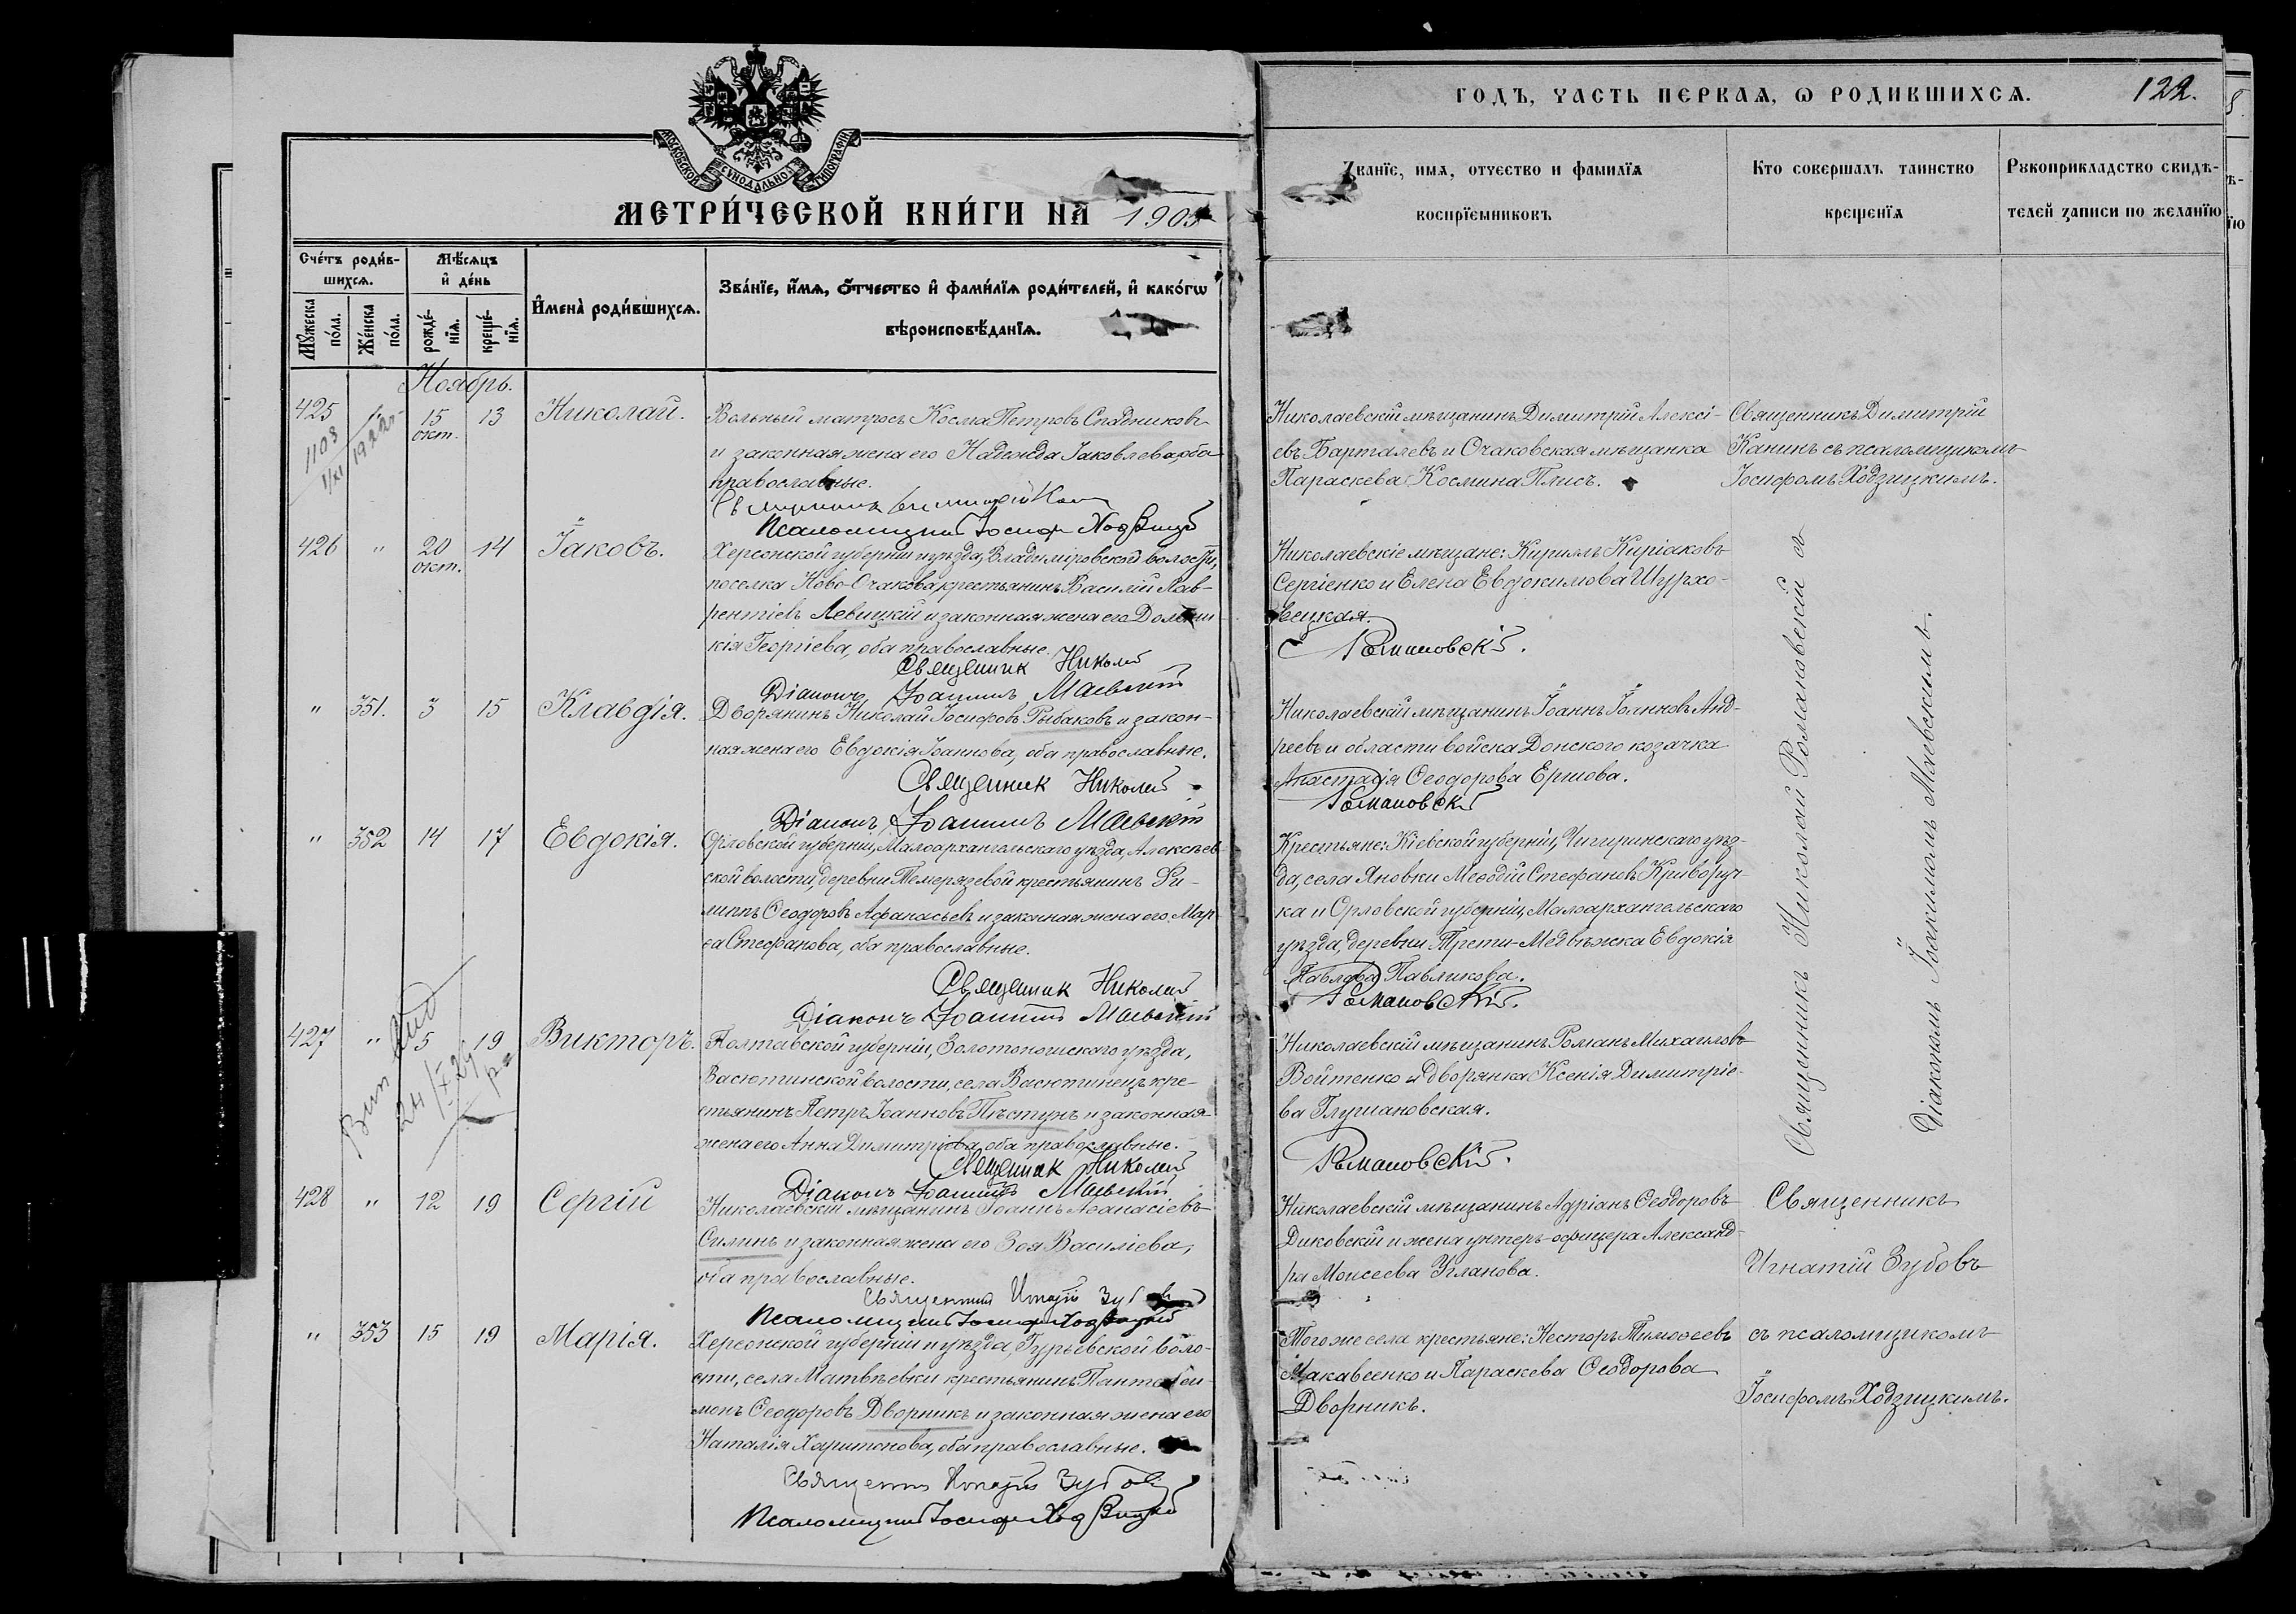 МОСКОВСКОЙ СѴНОДАЛЬНОЙ ТИПОГРАФІИ
МЕТРИ́ЧЕСКОЙ КНИ́ГИ НА 1905
Счéтъ роди́в-
шихсѧ.
Мꙋ́жеска
пóла.
Жéнска
пóла.
Мѣ́сѧцъ
и҆ дéнь
рождé-
нїѧ.
крещé-
нїѧ.
И҆менà роди́вшихсѧ.
Звáнїе, и҆́мѧ, ѻ҆́тчество и҆ фами́лїѧ роди́телей, и҆ какóгѡ
вѣроисповѣ́данїѧ.
Ноябрь.
425 15 окт. 13 Николай.
1103
1/XI 1922 г.
Вольный матросъ Косма Петровъ Спадниковъ
и законная жена его Надежда Іаковлева, оба
православные.
Псаломщикъ Іосифъ Ходзицкій
426 " 20 окт. 14 Іаковъ.
Херсонской губерніи и уѣзда, Владиміровской волости,
поселка Ново-Очакова, крестьянинъ Василій Лав-
рентіевъ Левицкій и законная жена его Домни-
кія Георгіева, оба православные.
Священник Николай
Діаконъ Іоакимъ Маевскій
" 351. 3 15 Клавдія.
Дворянинъ Николай Іосифовъ Рыбаковъ и закон-
ная жена его Евдокія Іоаннова, оба православные.
Священник Николай
Діаконъ Іоакимъ Маевскій
" 352 14 17 Евдокія.
Орловской губерніи, Малоархангельскаго уѣзда, Алексѣев-
ской волости, деревни Темерязевой крестьянинъ Фи-
липпъ Ѳеодоровъ Афанасьевъ и законная жена его Мар-
ѳа Стефанова, оба православные.
Священник Николай
Діаконъ Іоакимъ Маевскій
427 " 5 19 Викторъ.
24/X 29
Полтавской губерніи, Золотоношскаго уѣзда,
Васютинской волости, села Васютинецъ кре-
стьянинъ Петръ Іоанновъ Пѣстунъ и законная
жена его Анна Димитріева, оба православные.
Священник Николай
Діаконъ Іоакимъ Маевскій
428 " 12 19 Сергій
Николаевскій мѣщанинъ Іоаннъ Аѳанасіевъ
Силинъ и законная жена его Зоя Василіева,
оба православные.
Священникъ Игнатій Зубовъ
Псаломщикъ Іосифъ Ходзицкій
" 353 15 19 Марія.
Херсонской губерніи и уѣзда, Гурьевской воло-
сти, села Матвѣевки крестьянинъ Пантелеи-
монъ Ѳеодоровъ Дворникъ и законная жена его
Наталія Харитонова, оба православные.
Священникъ Игнатій Зубовъ
Псаломщикъ Іосифъ Ходзицкій
ГОДЪ, ЧАСТЬ ПЕРВАѦ, Ѡ РОДИВШИХСѦ. 122.
Званїе, имѧ, отчество и фамилїѧ
воспрїемниковъ
Кто совершалъ таинство
крещенїѧ
Рꙋкоприкладство свидѣ-
телей записи по желанїю
Николаевскій мѣщанинъ Димитрій Алексі-
евъ Барталевъ и Очаковская мѣщанка
Параскева Космина Плисъ.
Священникъ Димитрій
Канинъ съ псаломщикомъ
Іосифомъ Ходзицкимъ.
Николаевскіе мѣщане: Кириллъ Киріаковъ
Сергіенко и Елена Евдокимова Шурхо-
вецкая.
Романовскій.
Николаевскій мѣщанинъ Іоаннъ Іоанновъ Анд-
реевъ и области войска Донского козачка
Анастасія Ѳеодорова Ершова.
Романовскій
Крестьяне: Кіевской губерніи, Чигиринскаго уѣз-
да, села Яновки Меѳодій Стефановъ Криворуч-
ка и Орловской губерніи, Малоархангельскаго
уѣзда, деревни Трети-Медвѣжка Евдокія
Павлова Павликова.
Романовскій.
Николаевскій мѣщанинъ Романъ Михаиловъ
Войтенко и дворянка Ксенія Димитріе-
ва Глушановская.
Романовскій.
Священникъ Николай Романовскій съ
Діакономъ Іоакимомъ Маевскимъ.
Николаевскій мѣщанинъ Адріанъ Ѳеодоровъ
Диковскій и жена унтеръ-офицера Александ-
ра Моисеева Угланова.
Священникъ
Игнатій Зубовъ
Того же села крестьяне: Несторъ Тимоѳеевъ
Макавеенко и Параскева Ѳеодорова
Дворникъ.
съ псаломщикомъ
Іосифомъ Ходзицкимъ.